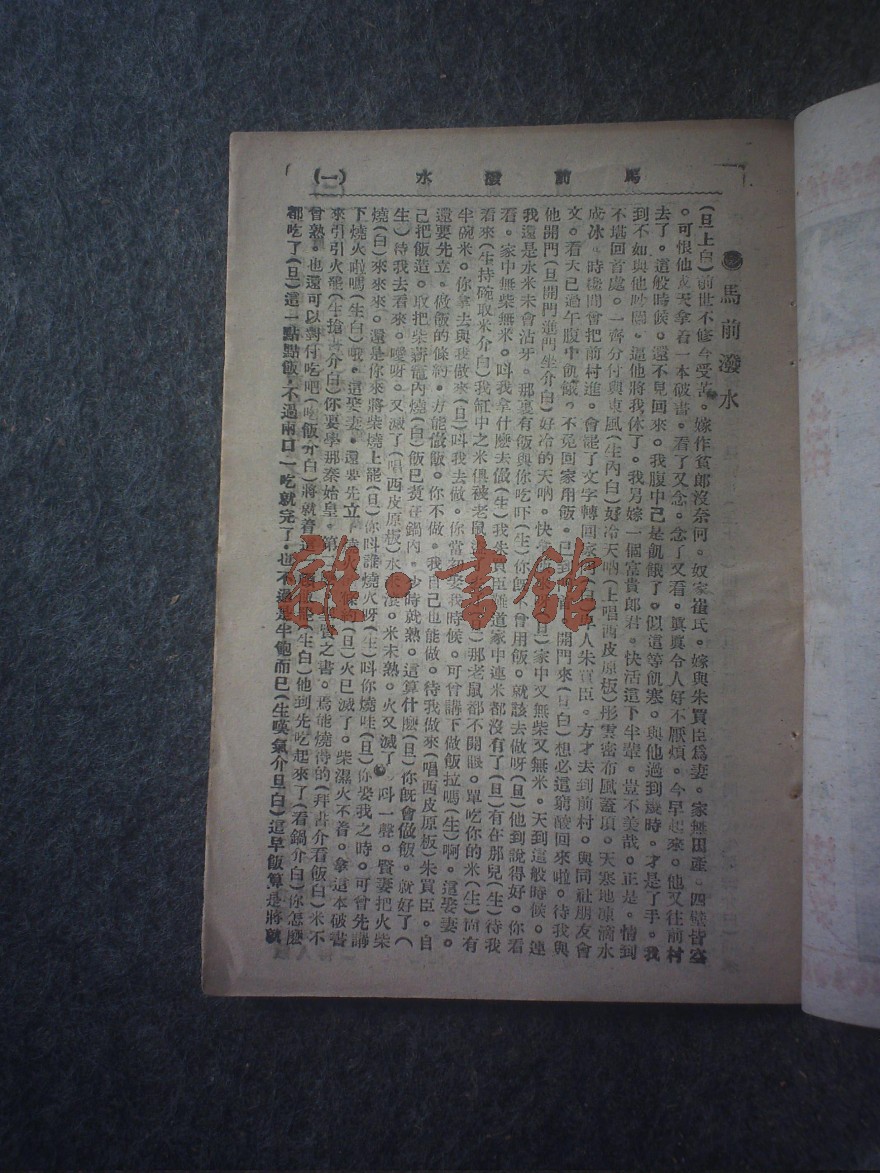 馬前潑水
(一)
馬前潑水
(旦上白)前世不修今受苦。嫁作貧郎沒奈何。奴家崔氏。嫁與朱買臣爲妻。家無田產。四壁皆空
。可恨他成天拿着一本破書。看了又念。念了又看。眞眞令人好不厭煩。今早起來。他又往前村
去了。這般時候。還不見回來。我腹中已是飢餓了。似這等飢寒。與他過到幾時。才是了手。我
到不如與他吵鬧。逼他將我休了。我另嫁一個富貴郎君。快活這下半輩。豈不美哉。正是。情到
不堪回首處。一齊分付與東風(生內白)好冷天吶(上唱西皮原板)彤雲密布風蓋頂。天寒地凍滴水
成冰。時纔間曾把前村進。會罷了文字轉回家 人朱買臣。方才去到前村。與同社朋友會
文。看天已過午腹中飢餓。不免回家用飯。已到 開門來(旦白)想必這窮酸回來啦。待我與
他開門(旦開門進門坐介白)好冷的天吶。快 旦)家中又無柴又無米。天到這般時候。連
我還是水米未曾沾牙。那裏有飯與你吃吓(生)你旣不曾用飯。就該去做呀(旦)他到說得好。你看
看。家中無柴無米。呌我拿什麽去做(生)我朱買臣 道家中連米都沒有了(旦)有在那兒(生)待我
看來(生持碗取米介白)我缸中之米俱被老鼠 )那老鼠都不開眼。單吃你的米(生)尚有
半碗米。你拿去與我做來(旦)呌我去做。你當初娶我時候。可曾講下做飯拉嗎(生)啊。這娶妻。
還要先立。做飯的條約。方能做飯。你不做。我自己也能做。待我做來(唱西皮原板)朱買臣。自
己把飯造。取把柴薪竈內燒(白)飯已煑在鍋內。少時就熟。這算什麽(旦)你旣會做飯。就好了(
生)待我去看來。嗳呀。又滅了(唱西皮原板)水 滾。米未熟。火又滅了。呌一聲。賢妻把火柴
燒(白)來來來。還是你來將柴燒上罷(旦)你呌誰燒火呀(生)呌你燒哇(旦)你娶我之時。可曾先講
下燒火啦嗎(生白)哦。這娶妻。還要先立 (旦)火已滅了。柴濕火不着。拿這本破書
來引引火罷(生搶書介白)你要學那秦始皇。第一 聖賢之書。焉能燒得的(拜書介看飯白)米不
曾熟。也還可以對付吃吧(吃飯介白)將就着這 (生白)他到先吃起來了(看鍋介白)你怎麽
都吃了(旦)這一點點飯。不過兩口一吃就完了。也不過是半飽而已(生嘆氣介旦白)這早飯算是將就
雜·書館